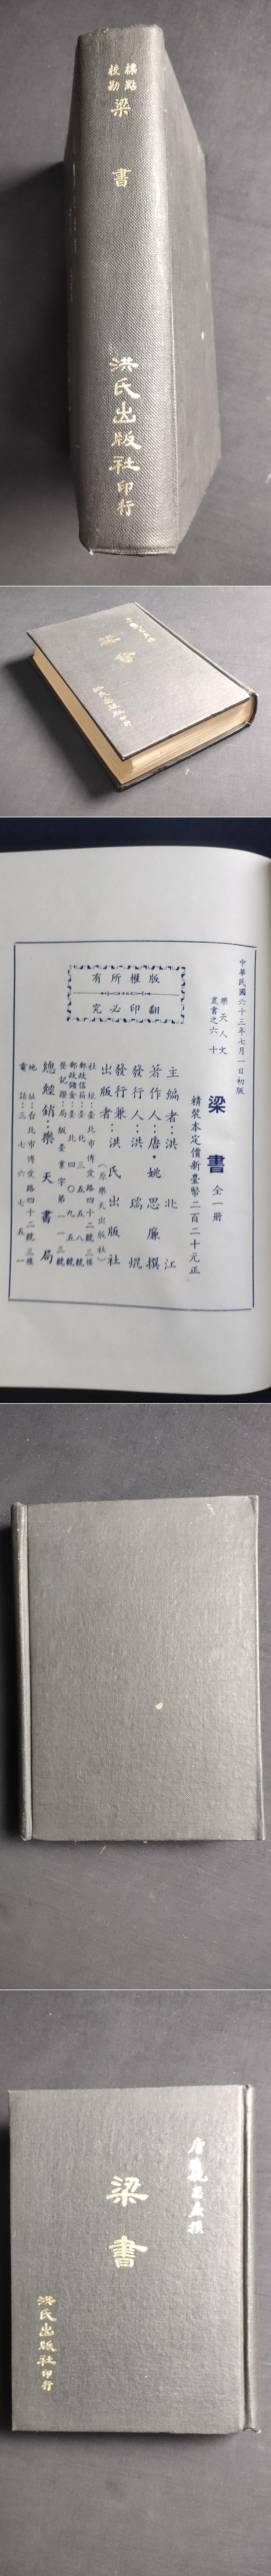 標點
校勘
梁書
洪氏出版社印行
梁書
中華民國六十三年七月一日初版
樂天人文
叢書之六十
梁書 全一册
精裝本定價新臺幣二百二十元正
版權所有
翻印必究
主編者：洪北江
著作人：唐・姚思廉撰
發行人：洪瑞焜
發行兼
出版者：洪氏出版社
（原樂天出版社）
社址：臺北市博愛路四十二號三樓
總經銷：樂天書局
地址：台北市博愛路四十二號三樓
電話：三七六七五一
唐姚思廉撰
梁書
洪氏出版社印行